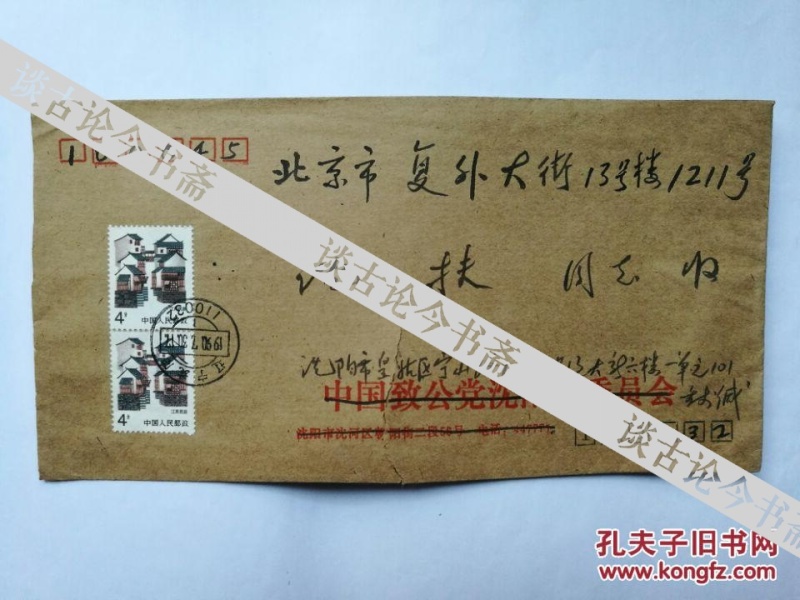 谈古论今书斋
1 0 4 5
北京市 复外大街13号楼1211号
扶 同志 收
4分
中国人民邮政
110032
1990.7.30.12
4分
江苏民居
中国人民邮政
沈阳市皇姑区宁山 号 大新六楼一单元101
中国致公党沈 委员会
沈阳市沈河区 阳街二段58号 电话:
3 2
谈古论今书斋
谈古论今书斋
孔夫子旧书网
www.kongfz.com